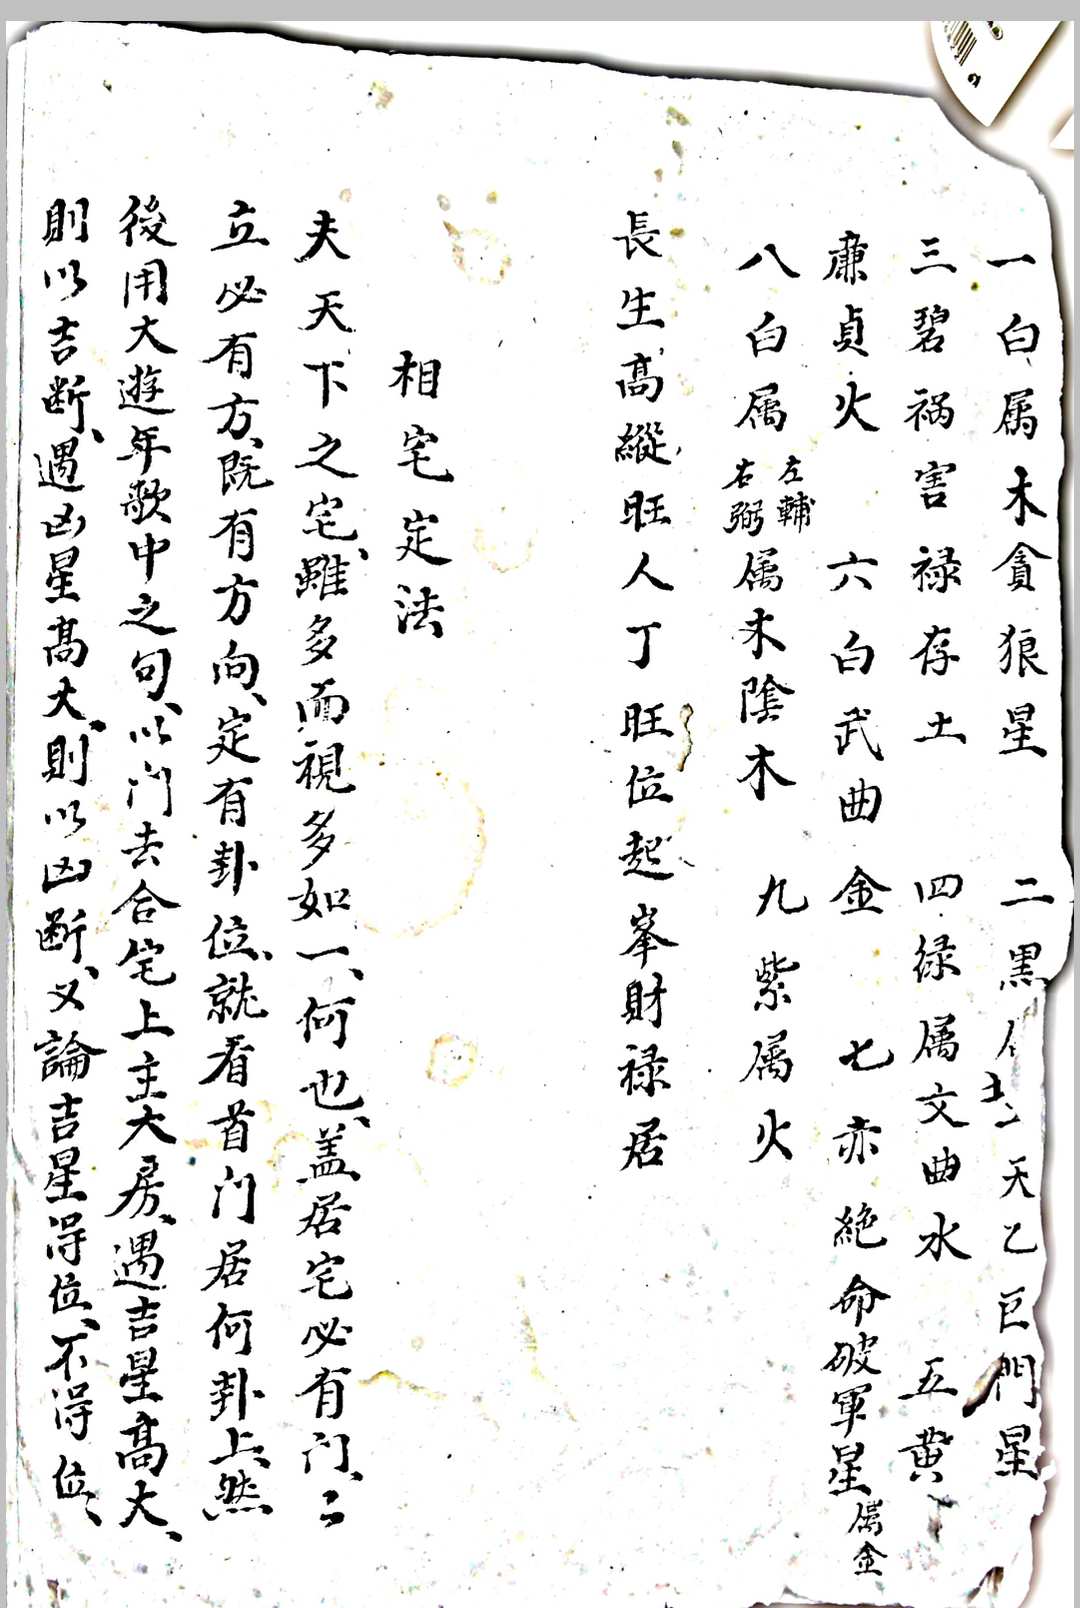 一白属木貪狼星　二黒属土天乙巨門星
三碧禍害禄存土　四緑属文曲水　五黄
廉貞火　六白武曲金　七赤絶命破軍星属金
八白属左輔右弼属木陰木　九紫属火
長生高縱旺人丁旺位起峯財禄居
相宅定法
夫天下之宅、雖多而視多如一、何也、盖居宅必有门、〻
立必有方、既有方向、定有卦位、就看首门居何卦上、然
後用大遊年歌中之句、以门去合宅上主大房、遇吉星高大、
則以吉断、遇凶星高大、則以凶断、又論吉星得位、不得位、